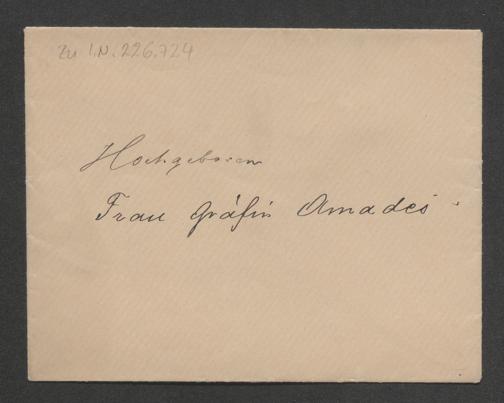 Zu I.N. 226.724
Hochgeboren
Frau Gräfin Amadeï